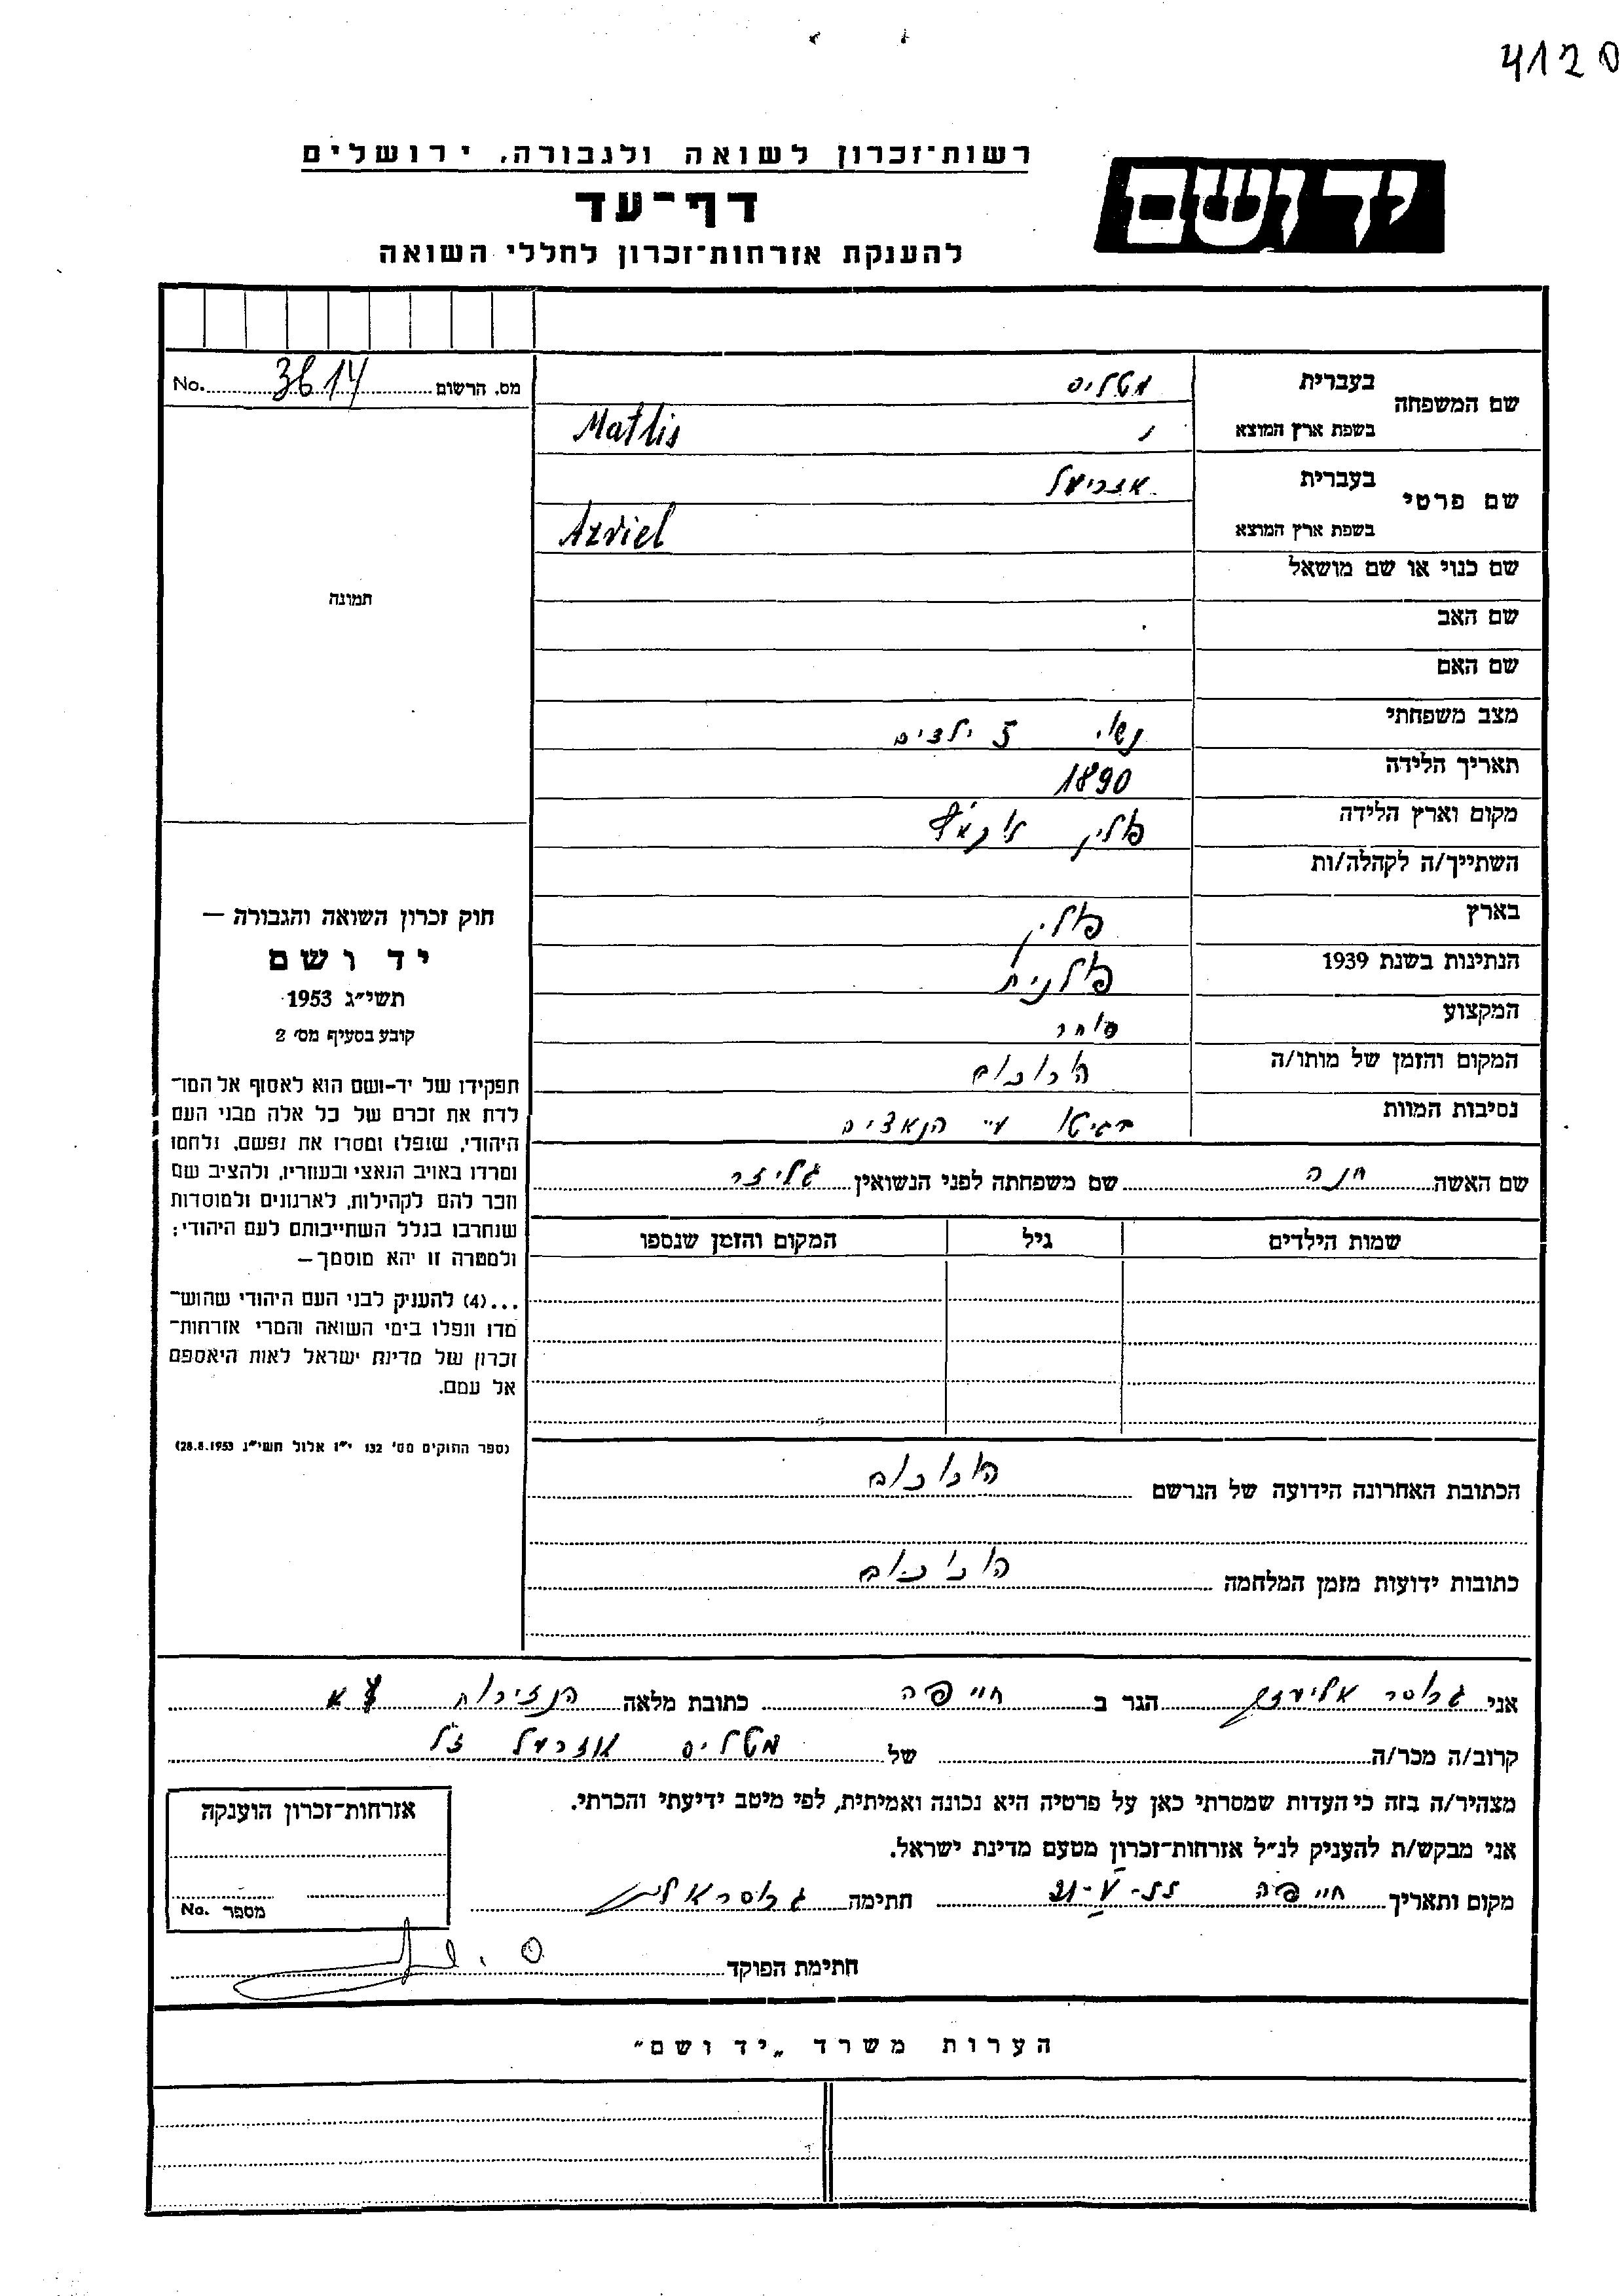 4120
רשות־זכרון לשואה ולגבורה, ירושלים
יד ושם
דף־עד
להענקת אזרחות־זכרון לחללי השואה
שם המשפחה בעברית מטליס
בשפת ארץ המוצא Matlis
מס. הרשום 3614 No.
שם פרטי בעברית אזריאל
בשפת ארץ המוצא Azriel
שם כנוי או שם מושאל
תמונה
שם האב
שם האם
מצב משפחתי נשוי 5 ילדים
תאריך הלידה 1890
מקום וארץ הלידה פולין
השתייך/ה לקהלה/ות
בארץ פולין
הנתינות בשנת 1939 פולנית
המקצוע סוחר
המקום והזמן של מותו/ה
נסיבות המוות בגיטו ע"י הנאצים
חוק זכרון השואה והגבורה —
יד ושם
תשי״ג 1953
קובע בסעיף מס׳ 2
תפקידו של יד-ושם הוא לאסוף אל המו־
לדת את זכרם של כל אלה מבני העם
היהודי, שנפלו ומסרו את נפשם, נלחמו
ומרדו באויב הנאצי ובעוזריו, ולהציב שם
וזכר להם לקהילות, לארגונים ולמוסדות
שנחרבו בגלל השתייכותם לעם היהודי;
ולמטרה זו יהא מוסמך—
...(4) להעניק לבני העם היהודי שהוש־
מדו ונפלו בימי השואה והמרי אזרחות־
זכרון של מדינת ישראל לאות היאספם
אל עמם.
(ספר החוקים מס׳ 132 י״ז אלול תשי״ג 28.8.1953)
שם האשה חנה שם משפחתה לפני הנשואין גליזר
שמות הילדים גיל המקום והזמן שנספו
הכתובת האחרונה הידועה של הנרשם
כתובות ידועות מזמן המלחמה
אני גרוסר אליעזר הגר ב חייפה כתובת מלאה
קרוב/ה מכר/ה של מטליס אזריאל ז"ל
מצהיר/ה בזה כי העדות שמסרתי כאן על פרטיה היא נכונה ואמיתית, לפי מיטב ידיעתי והכרתי.
אני מבקש/ת להעניק לנ״ל אזרחות־זכרון מטעם מדינת ישראל.
מקום ותאריך חייפה חתימה
אזרחות־זכרון הוענקה
מספר No.
חתימת הפוקד
הערות משרד „יד ושם״